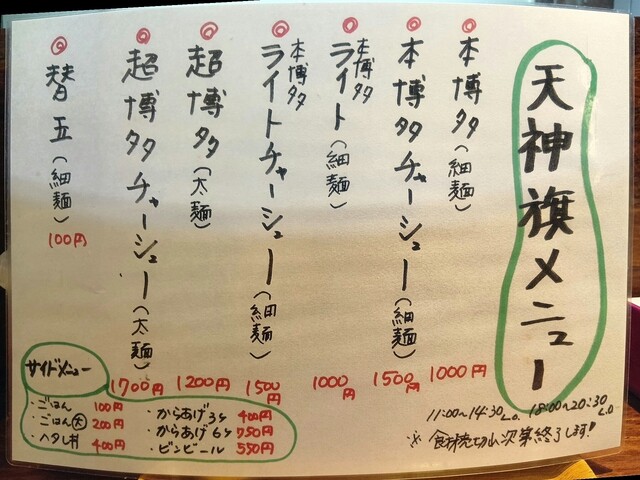 天神旗メニュー
◎本博多(細麺) 1000円
◎本博多チャーシュー(細麺) 1500円
◎本博多ライト(細麺) 1000円
◎本博多ライトチャーシュー(細麺) 1500円
◎超博多(太麺) 1200円
◎超博多チャーシュー(太麺) 1700円
◎替玉(細麺) 100円
11:00〜14:30 L.O. 18:00〜20:30 L.O
※食材売切れ次第終了します!
サイドメニュー
・ごはん 100円
・ごはん大 200円
・ヘタレ丼 400円
・からあげ3ヶ 400円
・からあげ6ヶ 750円
・ビンビール 550円